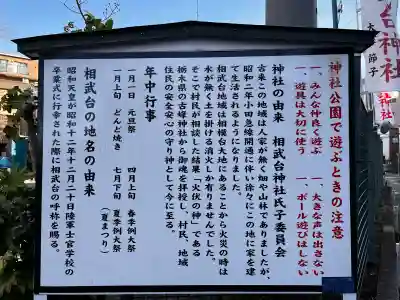 神社公園で遊ぶときの注意
一、みんな仲良く遊ぶ
一、大きな声は出さない
一、遊具は大切に使う
一、ボール遊びはしない
神社の由来 相武台神社氏子委員会
古来この地域は人家が無く畑や山林でありましたが、
昭和二年小田急線開通に伴い徐々にこの地に家を建
て生活されるようになりました。
相武台地域は相模台大地にあることから火災の時は
水が無く土を掛ける消火しか有りませんでした。
そこで村民が相談した結果「火伏の神」である
栃木県の古峰神社から御魂を拝授し、村民、地域
住民の安全安心の守り神として今に至る。
年中行事
一月一日 元旦祭
一月上旬 どんど焼き
四月上旬 春季例大祭
七月下旬 夏季例大祭
(夏まつり)
相武台の地名の由来
昭和天皇が昭和十二年十二月二十日陸軍士官学校の
卒業式に行幸された際に相武台の呼称を賜る。
台神社
節子
神社